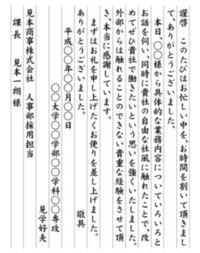 謹啓　このたびはお忙しい中を、お時間を割いて頂きまし
て、ありがとうございました。
本日、〇〇様から具体的な業務内容についていろいろと
お話を伺い、同時に貴社の自由な社風に触れたことで、改
めてぜひ貴社で働きたいという思いを強くいたしました。
外部からは触れることのできない貴重な経験をさせて頂
き、本当に感謝しています。
まずはお礼を申し上げたくお便りを差し上げました。
ありがとうございました。
敬具
平成〇〇年〇月〇〇日
〇〇大学〇〇学部〇〇学科〇〇専攻
見学好夫
見本商事株式会社　人事部採用担当
課長　見本一朗様